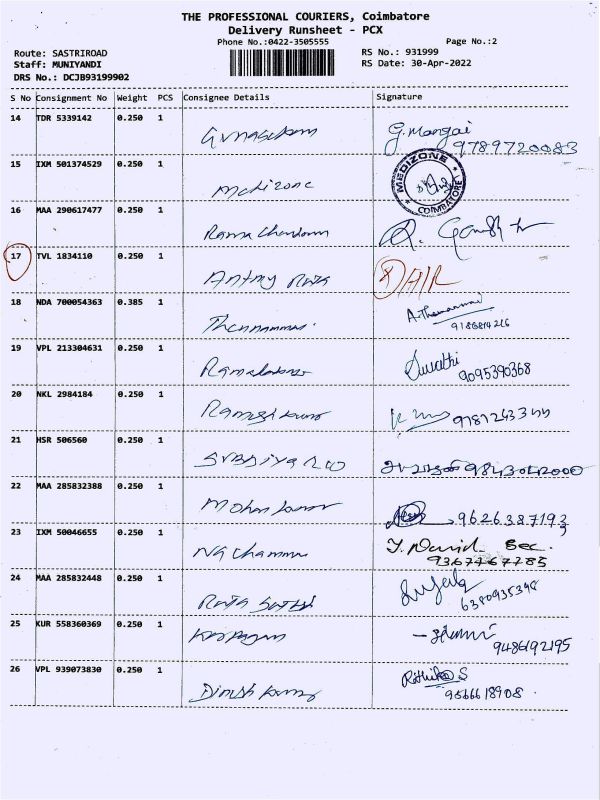 THE PROFESSIONAL COURIERS, Coimbatore
Delivery Runsheet - PCX
Phone No.:0422-3505555
Page No.:2
Route: SASTRIROAD
RS No.: 931999
Staff: MUNIYANDI
RS Date: 30-Apr-2022
DRS No.: DCJB93199902
S No Consignment No Weight PCS Consignee Details Signature
14 TDR 5339142 0.250 1
G. Mangai
9789720083
15 IXM 501374529 0.250 1
Medizone
MEDIZONE
COIMBATORE
16 MAA 290617477 0.250 1
Rama Chandran
17 TVL 1834110 0.250 1
Antny Raja
18 NDA 700054363 0.385 1
19 VPL 213304631 0.250 1
Swathi
9095390368
20 NKL 2984184 0.250 1
Ramesh Kumar
21 HSR 506560 0.250 1
22 MAA 285832388 0.250 1
Mohan Kumar
9626387193
23 IXM 50046655 0.250 1
J. David Sec.
9367767785
24 MAA 285832448 0.250 1
25 KUR 558360369 0.250 1
9486192195
26 VPL 939073830 0.250 1
Dinesh Kumar
Rithika S
9566618908